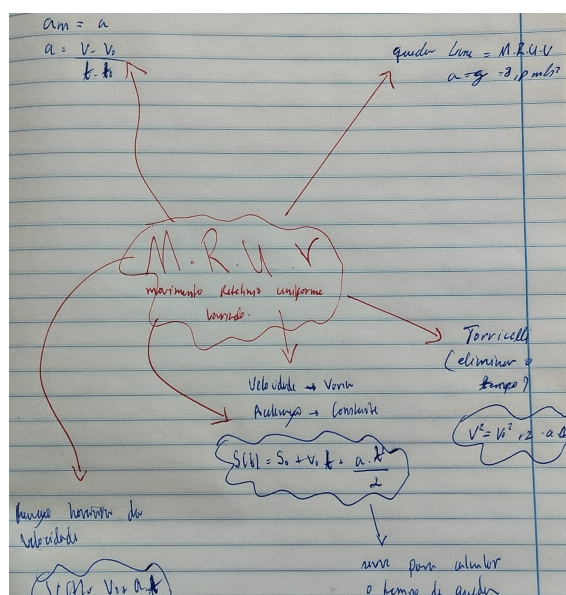 am = a
a = V - V₀
t - t₀
queda Livre = M.R.U.V
a = g
M.R.U.V
movimento Retilínio uniforme
variado.
Torricelli
(eliminar o
tempo)
Velocidade → Varia
Aceleração → Constante
V² = V₀² + 2 · a
S(t) = S₀ + V₀ t + a.t²
2
Função horária da
velocidade
serve para calcular
V₀ + a.t
o tempo de queda